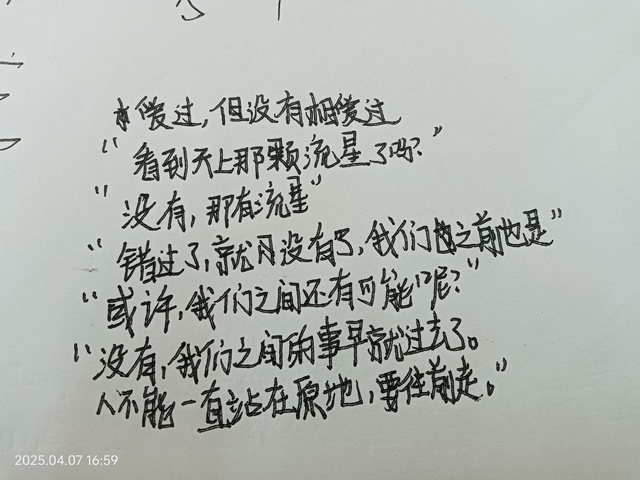 爱过，但没有相爱过
“看到天上那颗流星了吗？”
“没有，那有流星”
“错过了，就没有了，我们之前也是”
“或许，我们之间还有可能呢？”
“没有，我们之间的事早就过去了。
人不能一直站在原地，要往前走。”
2025.04.07 16:59